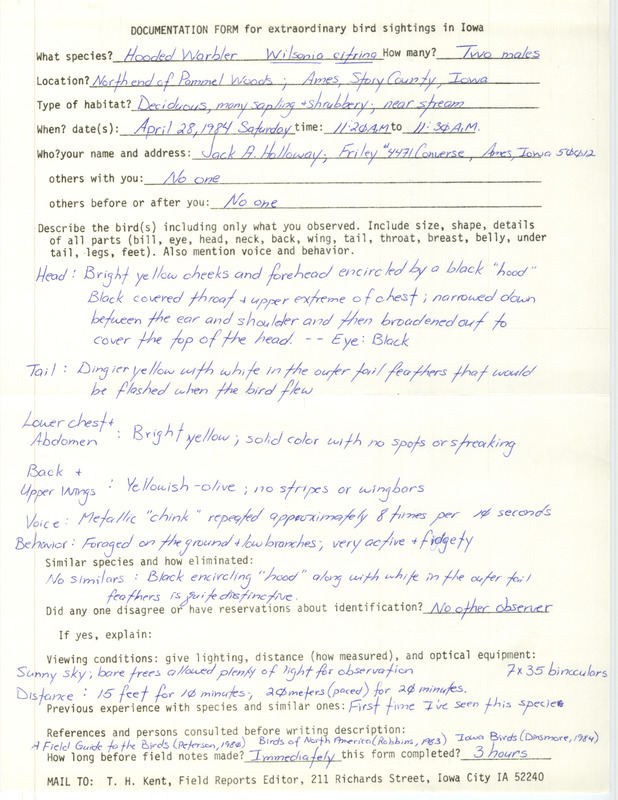 DOCUMENTATION FORM for extraordinary bird sightings in Iowa
What species? Hooded Warbler Wilsonia citrina How many? Two males
Location? North end of Pammel Woods ; Ames, Story County, Iowa
Type of habitat? Deciduous, many sapling + shrubbery ; near stream
When? date(s): April 28, 1984 Saturday time: 11:20 A.M. to 11:30 A.M.
Who?your name and address: Jack A. Holloway ; Friley #4471 Converse, Ames, Iowa 50012
others with you: No one
others before or after you: No one
Describe the bird(s) including only what you observed. Include size, shape, details
of all parts (bill, eye, head, neck, back, wing, tail, throat, breast, belly, under
tail, legs, feet). Also mention voice and behavior.
Head : Bright yellow cheeks and forehead encircled by a black "hood"
Black covered throat + upper extreme of chest ; narrowed down
between the ear and shoulder and then broadened out to
cover the top of the head. -- Eye: Black
Tail : Dingier yellow with white in the outer tail feathers that would
be flashed when the bird flew
Lower chest +
Abdomen : Bright yellow ; solid color with no spots or streaking
Back +
Upper Wings : Yellowish-olive ; no stripes or wingbars
Voice : Metallic "chink" repeated approximately 8 times per 10 seconds
Behavior : Foraged on the ground + low branches ; very active + fidgety
Similar species and how eliminated:
No similars : Black encircling "hood" along with white in the outer tail
feathers is quite distinctive.
Did any one disagree or have reservations about identification? No other observer
If yes, explain:
Viewing conditions: give lighting, distance (how measured), and optical equipment:
Sunny sky ; bare trees allowed plenty of light for observation 7x35 binoculars
Distance : 15 feet for 10 minutes ; 20 meters (paced) for 20 minutes.
Previous experience with species and similar ones: First time I've seen this species
References and persons consulted before writing description:
A Field Guide to the Birds (Peterson, 1980) Birds of North America (Robbins, 1983) Iowa Birds (Dinsmore, 1984)
How long before field notes made? Immediately this form completed? 3 hours
MAIL TO: T. H. Kent, Field Reports Editor, 211 Richards Street, Iowa City IA 52240